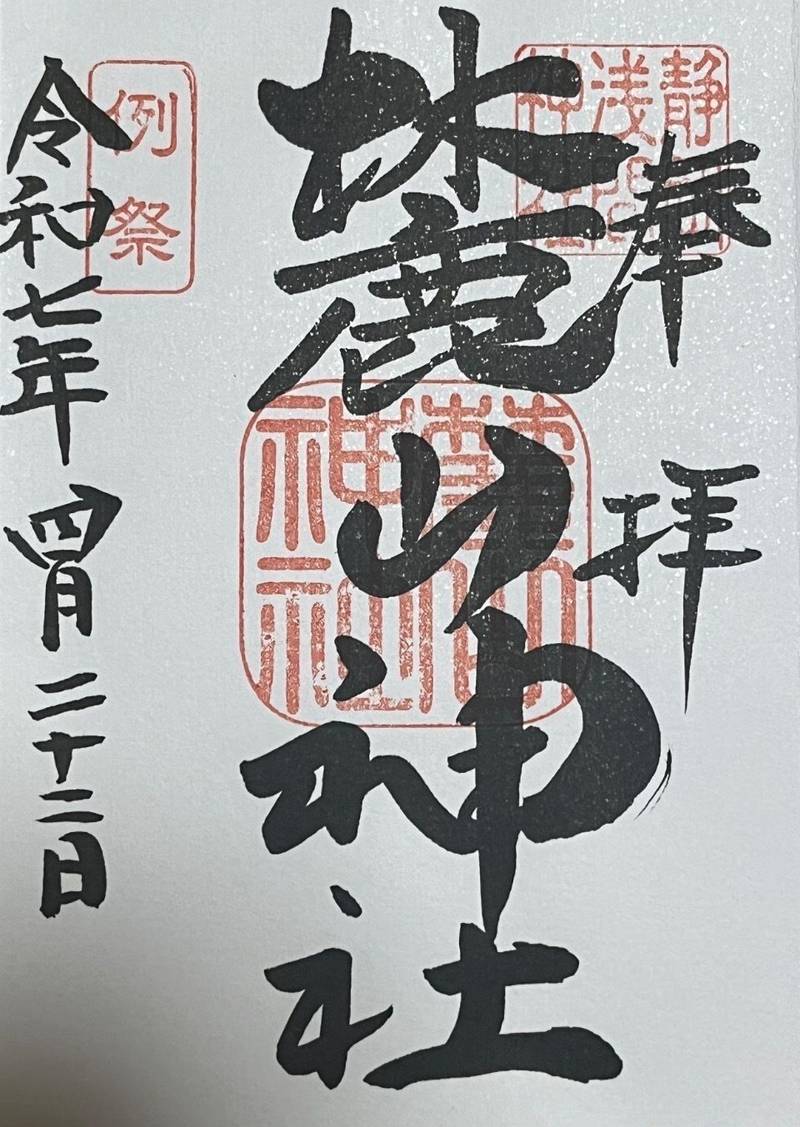 奉拝
静岡浅間神社
麓山神社
麓山神社
例祭
令和七年四月二十二日